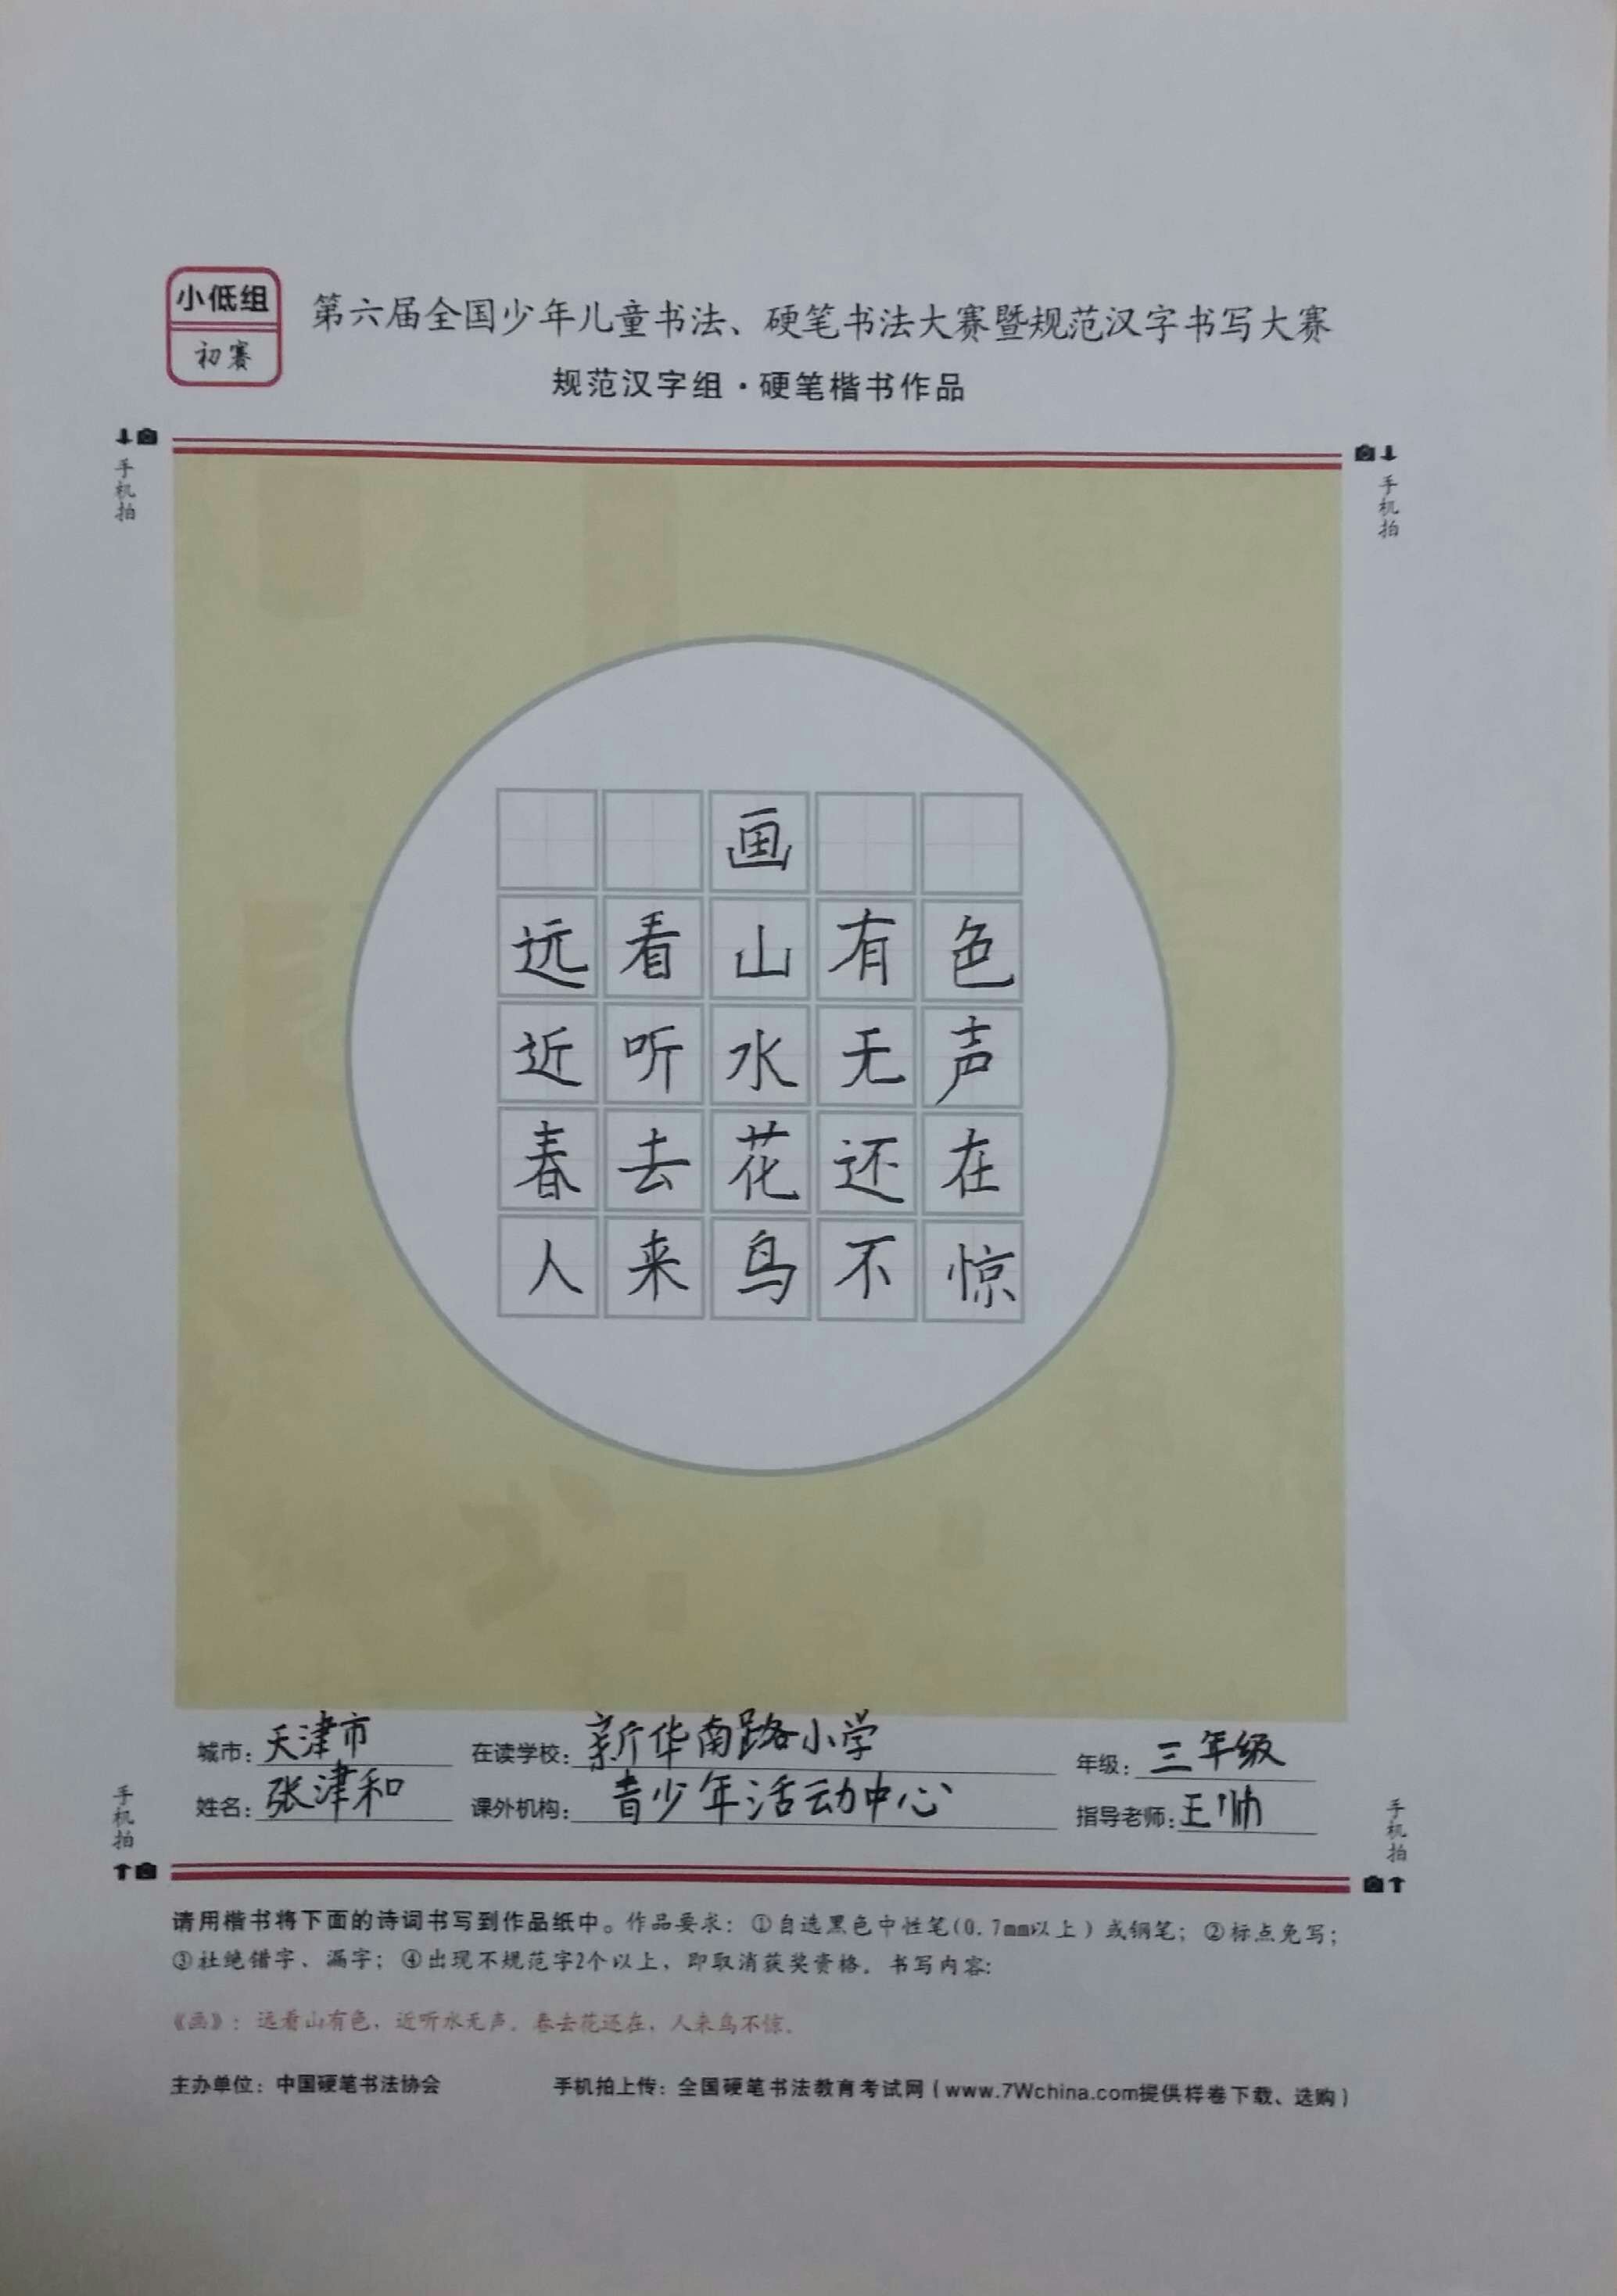 小低组
初赛
第六届全国少年儿童书法、硬笔书法大赛暨规范汉字书写大赛
规范汉字组·硬笔楷书作品
手机拍
手机拍
画
远看山有色
近听水无声
春去花还在
人来鸟不惊
城市：天津市 在读学校：新华南路小学 年级：三年级
姓名：张津和 课外机构：青少年活动中心 指导老师：王帅
手机拍
手机拍
请用楷书将下面的诗词书写到作品纸中。作品要求：①自选黑色中性笔(0.7mm以上)或钢笔；②标点免写；
③杜绝错字、漏字；④出现不规范字2个以上，即取消获奖资格。书写内容：
《画》：远看山有色，近听水无声。春去花还在，人来鸟不惊。
主办单位：中国硬笔书法协会 手机拍上传：全国硬笔书法教育考试网（www.7Wchina.com提供样卷下载、选购）